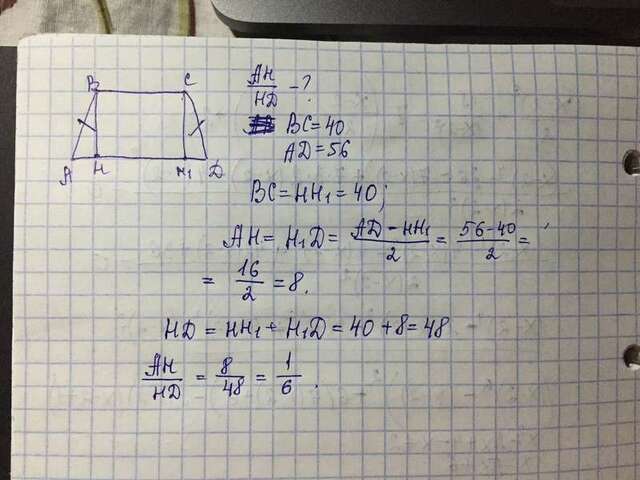 B C
A H H₁ D
AH/HD - ?
BC = 40
AD = 56
BC = HH₁ = 40;
AH = H₁D = (AD - HH₁)/2 = (56 - 40)/2 =
= 16/2 = 8.
HD = HH₁ + H₁D = 40 + 8 = 48
AH/HD = 8/48 = 1/6.